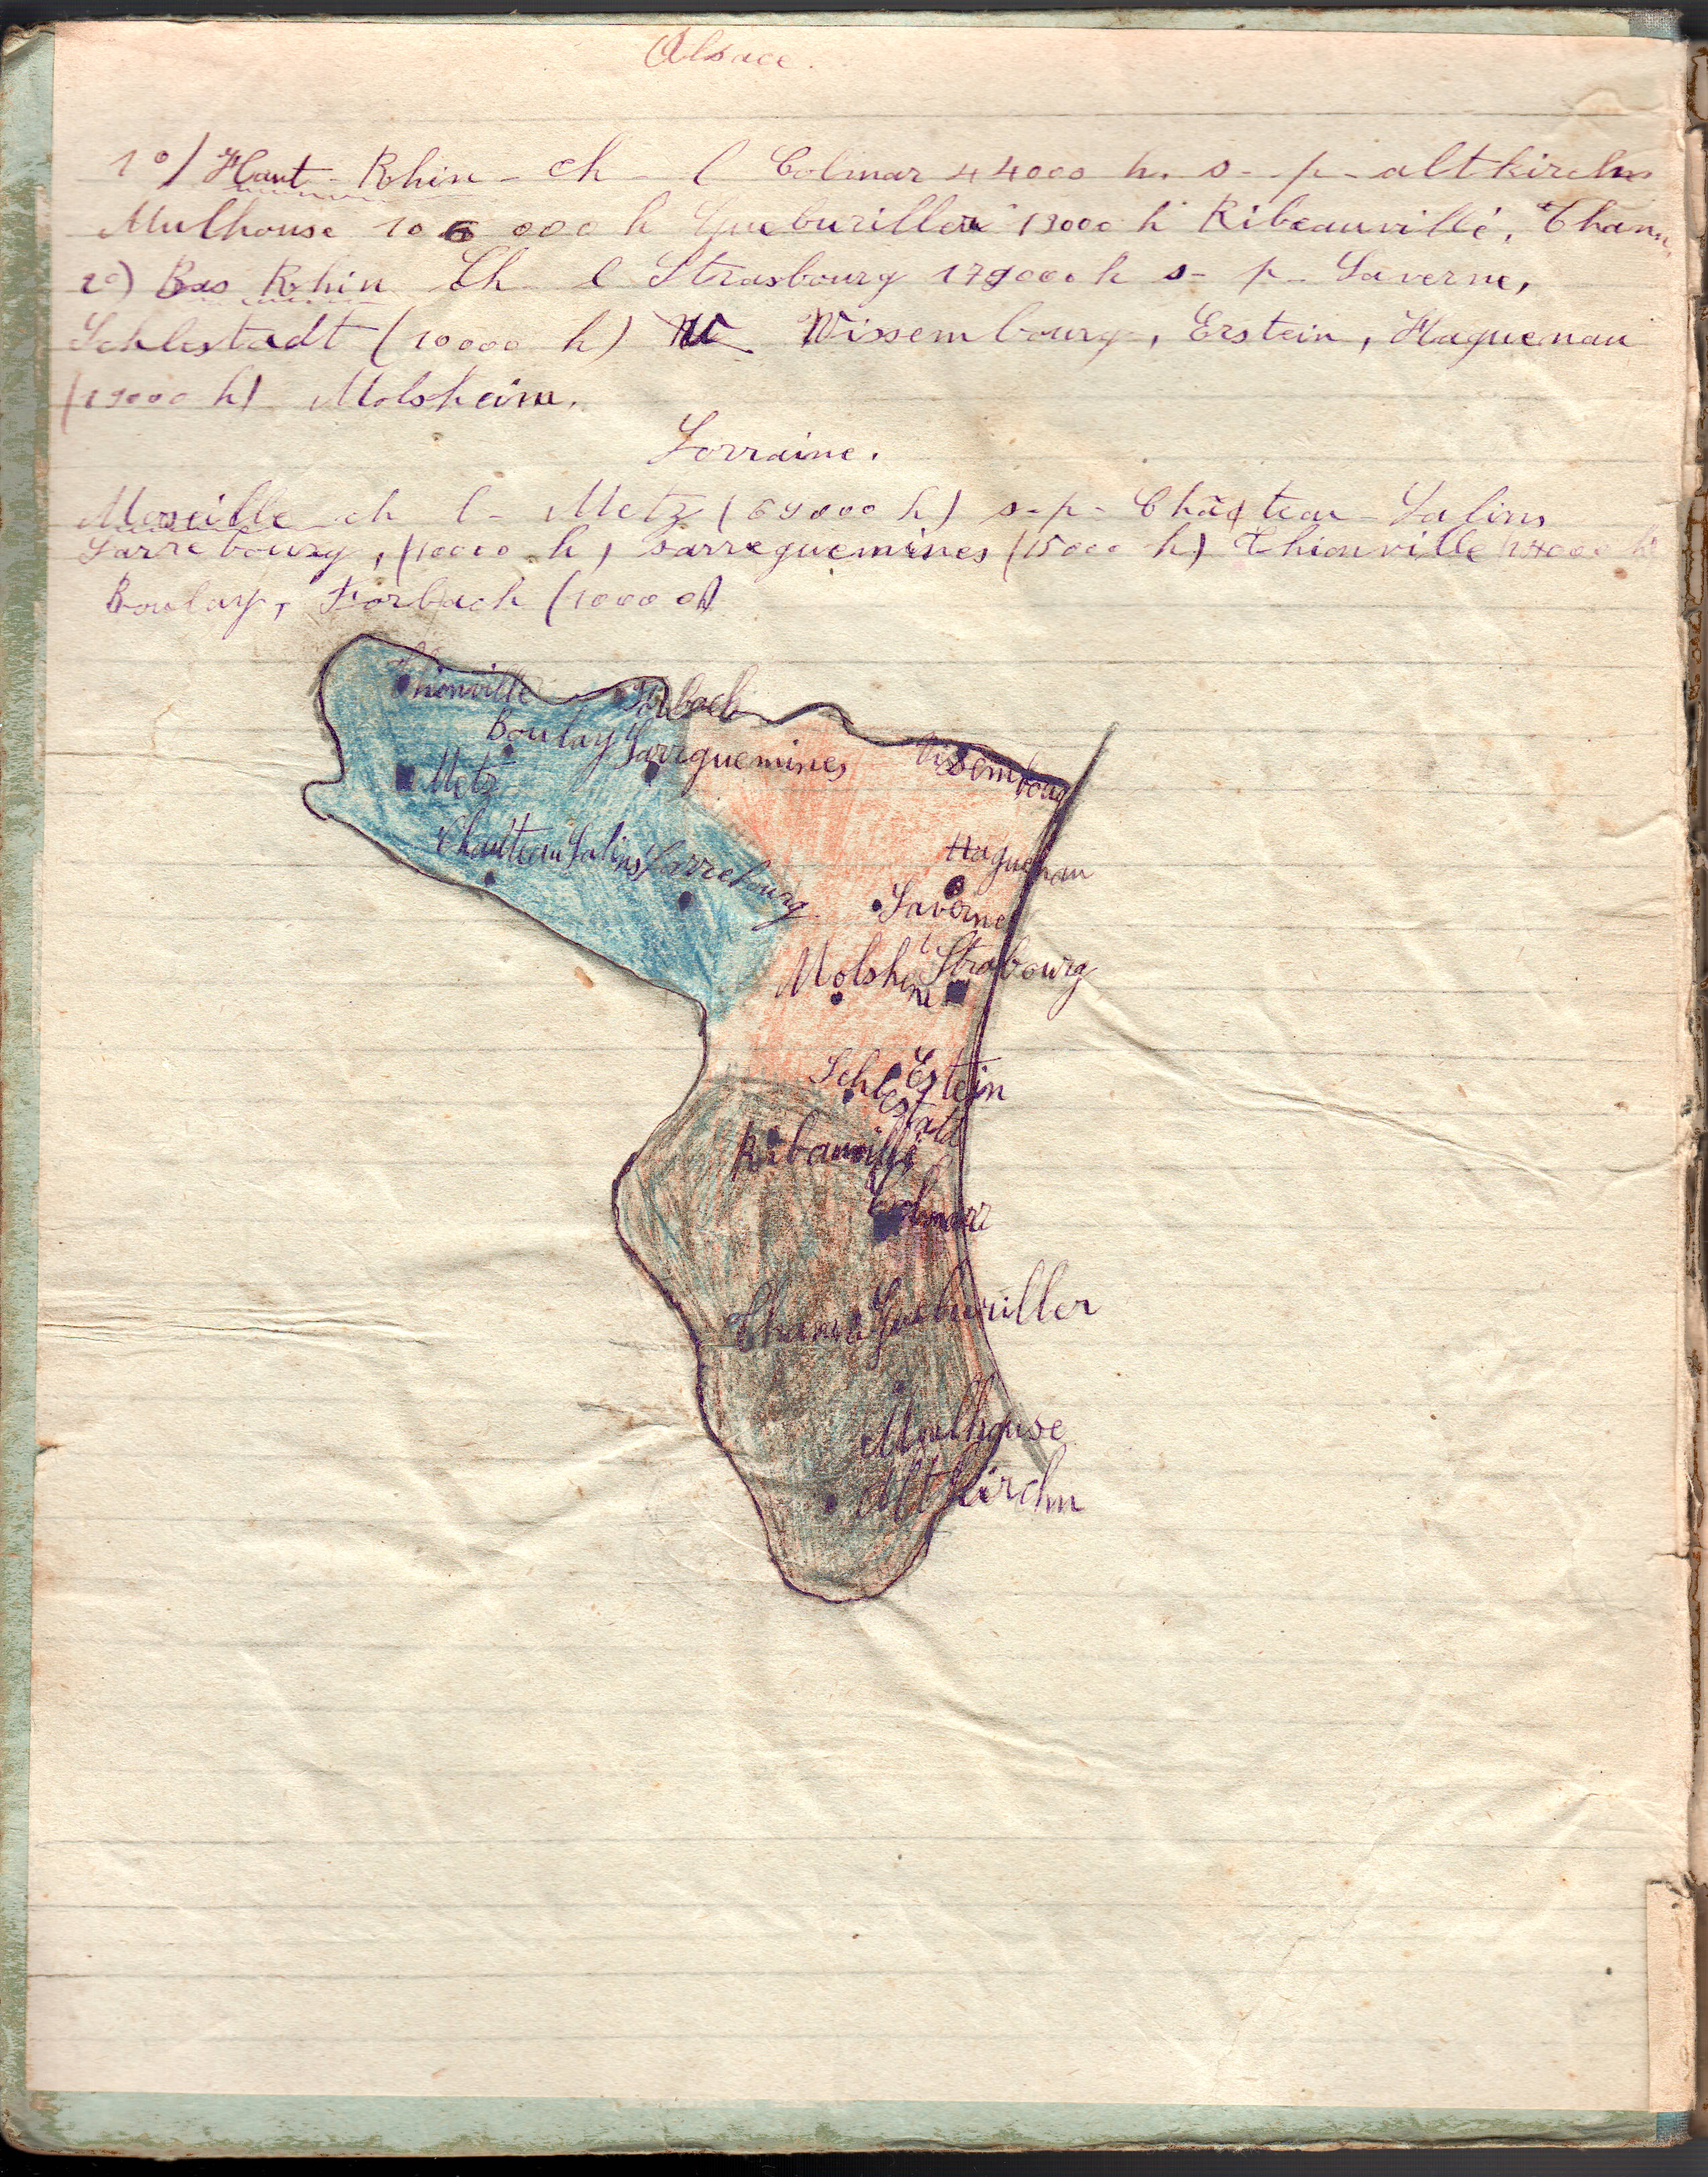 Alsace.
1°/ Haut-Rhin - ch - l Colmar 44000 h. s - p - altkirchn
Mulhouse 106 000 h Guebwiller 13000 h Ribeauvillé, Thann,
2°) Bas Rhin Ch l Strasbourg 179000 h s - p - Saverne,
Schlestadt (10000 h) W Wissembourg, Erstein, Haguenau
(19000 h) Molsheim.
Lorraine.
Moselle ch l - Metz (69000 h) s-p- Château-Salins
Sarrebourg, (10000 h) sarreguemines (15000 h) Thionville (14000 h)
Boulay, Forbach (1000 h)
Thionville
Forbach
Boulay
Sarrguemines
Vissembourg
Metz
Chauteau Salins
Sarrebourg
Haguenau
Saverne
Molsheim
Strabourg
Schlestatd
Erstein
Ribauvillé
Colmarr
Thann
Guebwiller
Mulhouse
Altkirchn